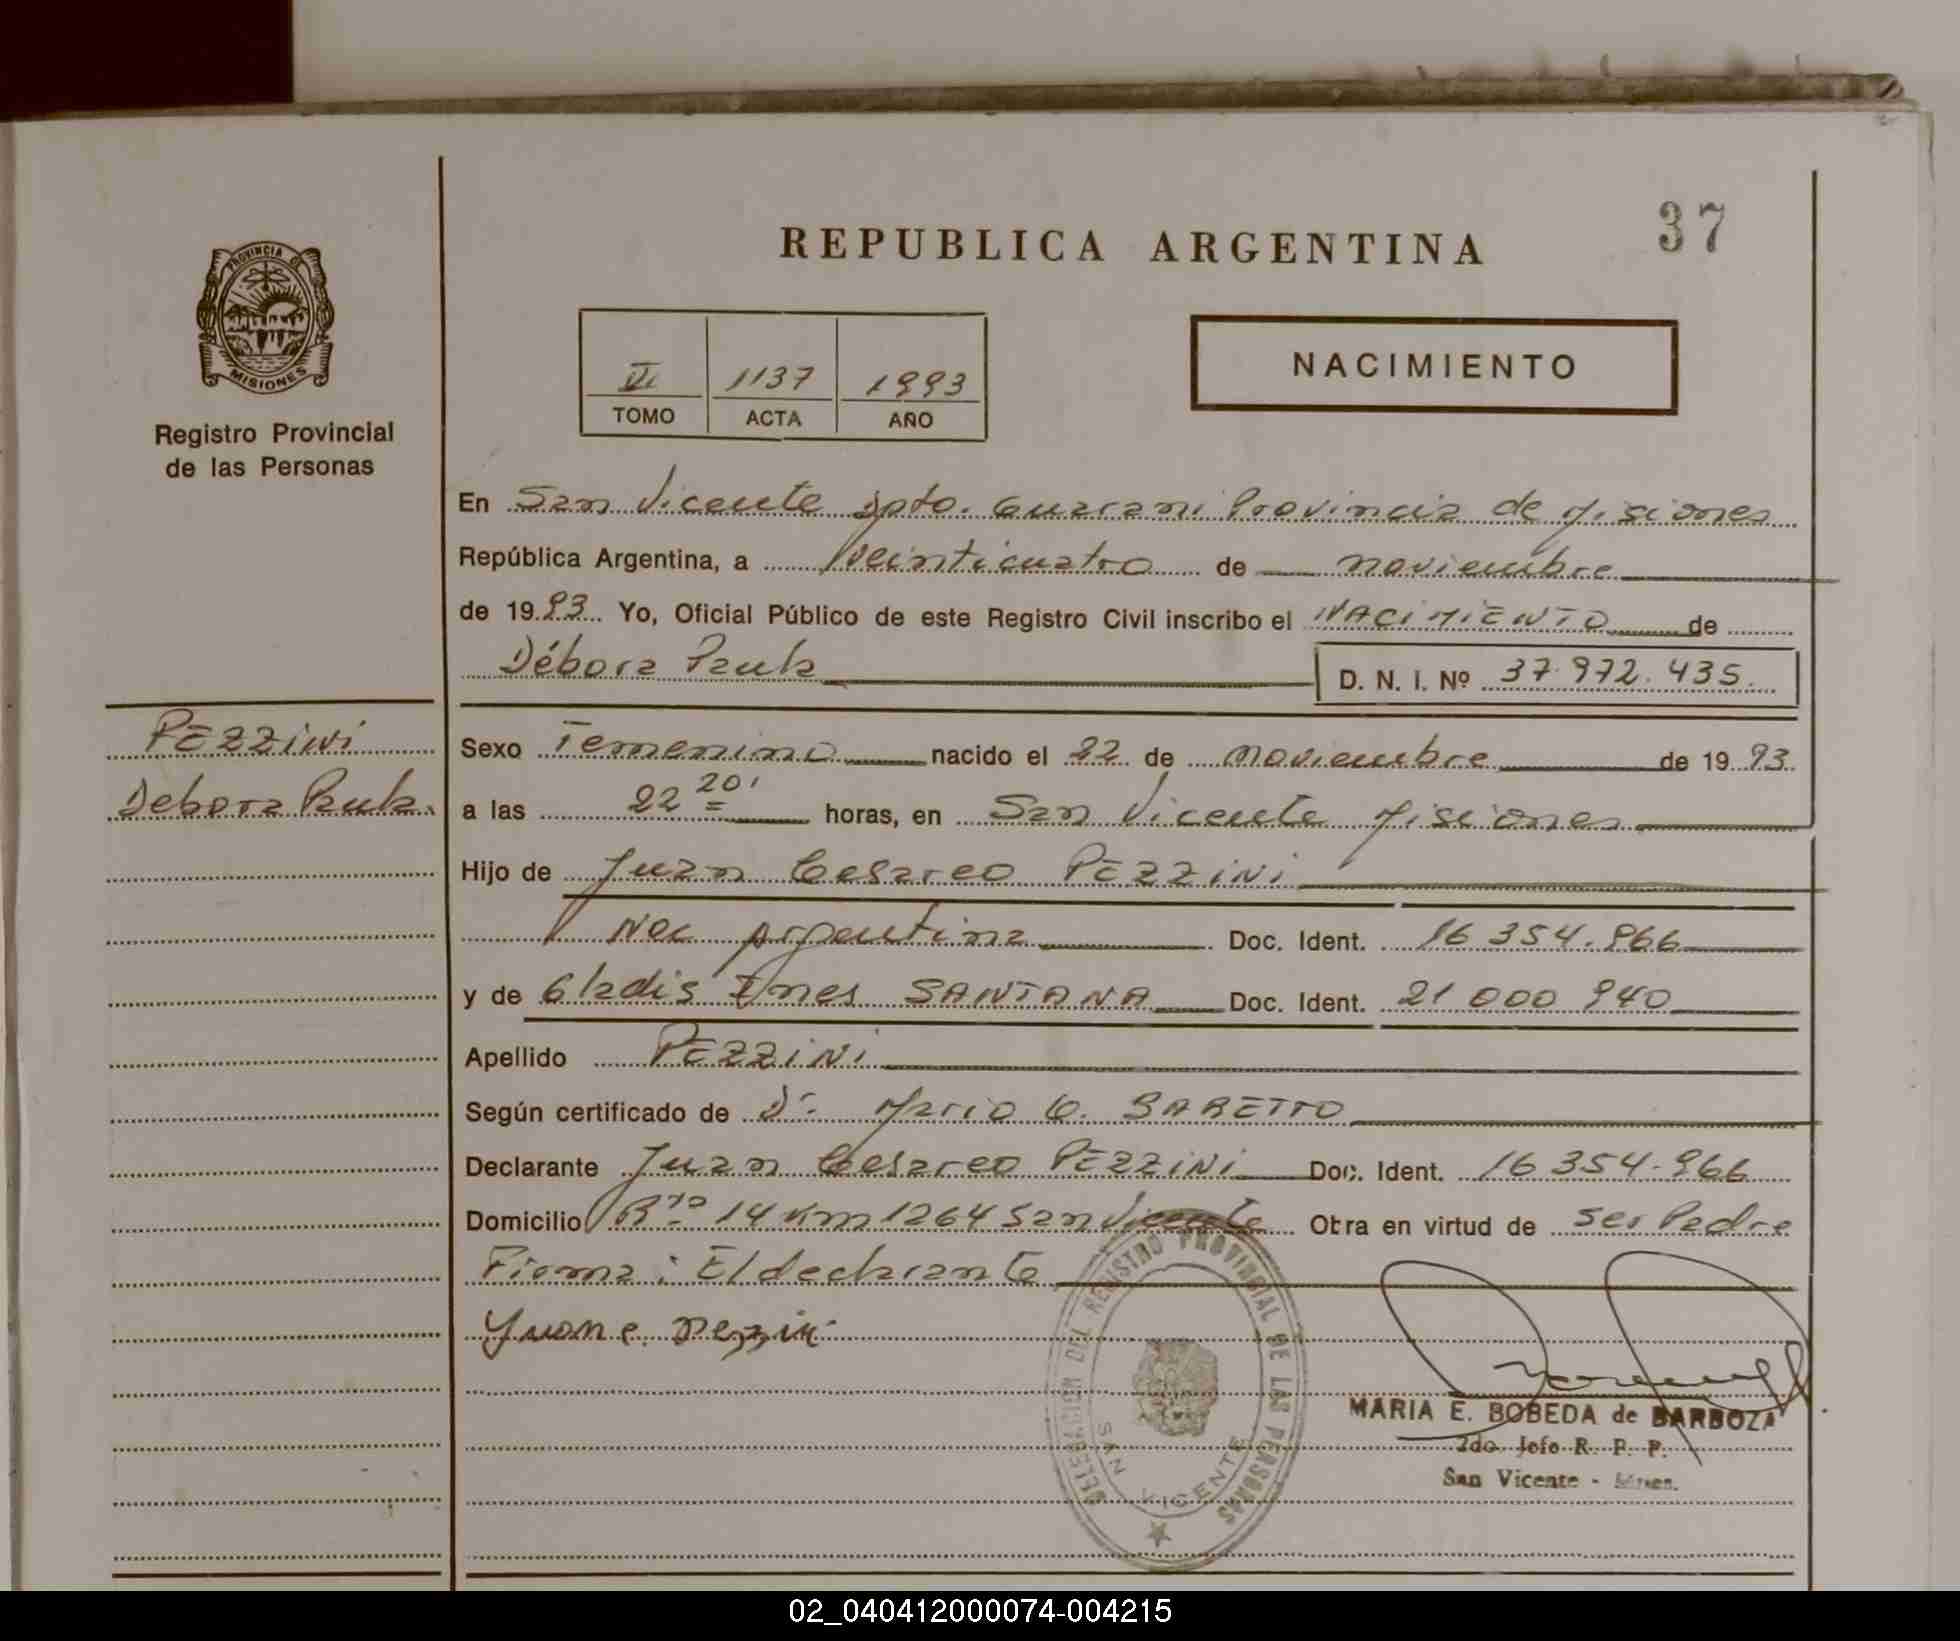 37
REPUBLICA ARGENTINA
PROVINCIA DE
MISIONES
Registro Provincial
de las Personas
VI 1137 1993
TOMO ACTA AÑO
NACIMIENTO
En San Vicente Dpto. Guarani Provincia de Misiones
República Argentina, a Veinticuatro de noviembre
de 1993 Yo, Oficial Público de este Registro Civil inscribo el NACIMIENTO de
Débora Paula D. N. I. Nº 37.972.435.
PEZZINI
Debora Paula.
Sexo Femenino nacido el 22 de noviembre de 1993.
a las 22 20' horas, en San Vicente Misiones
Hijo de Juan Cesareo PEZZINI
Nac Argentina Doc. Ident. 16 354.966
y de Gladis Ines SANTANA Doc. Ident. 21 000 940
Apellido PEZZINI
Según certificado de Dr. Mario C. BARETTO
Declarante Juan Cesareo PEZZINI Doc. Ident. 16 354.966
Domicilio Rta 14 Km 1264 San Vicente Otra en virtud de ser Padre
Firma: El declarante
DELEGACION DEL REGISTRO PROVINCIAL DE LAS PERSONAS
SAN VICENTE
MARIA E. BOBEDA de BARBOZA
2do. Jefe R. P. P.
San Vicente -
02_040412000074-004215